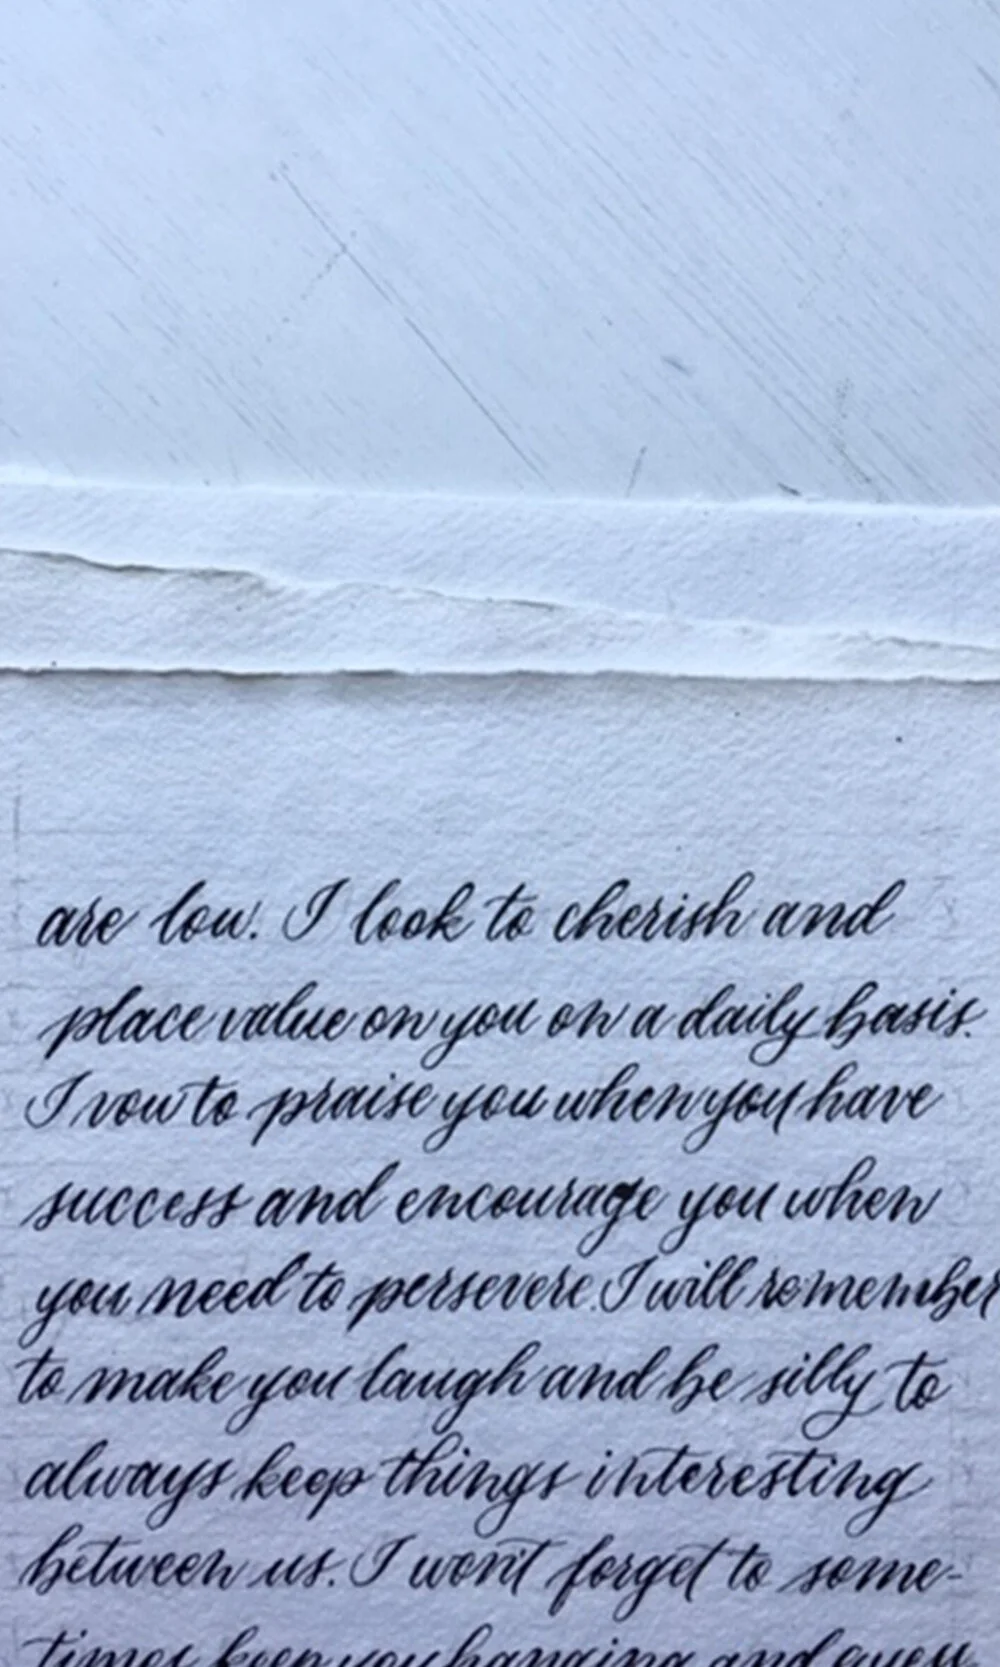 are low. I look to cherish and
place value on you on a daily basis.
I vow to praise you when you have
success and encourage you when
you need to persevere. I will remember
to make you laugh and be silly to
always keep things interesting
between us. I won't forget to some-
times keep you hanging and